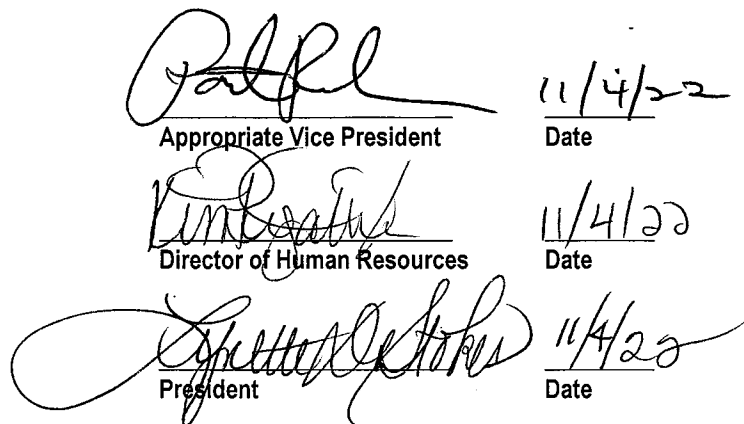 11/4/22
Appropriate Vice President Date
11/4/22
Director of Human Resources Date
Lynette D. Stokes 11/4/22
President Date